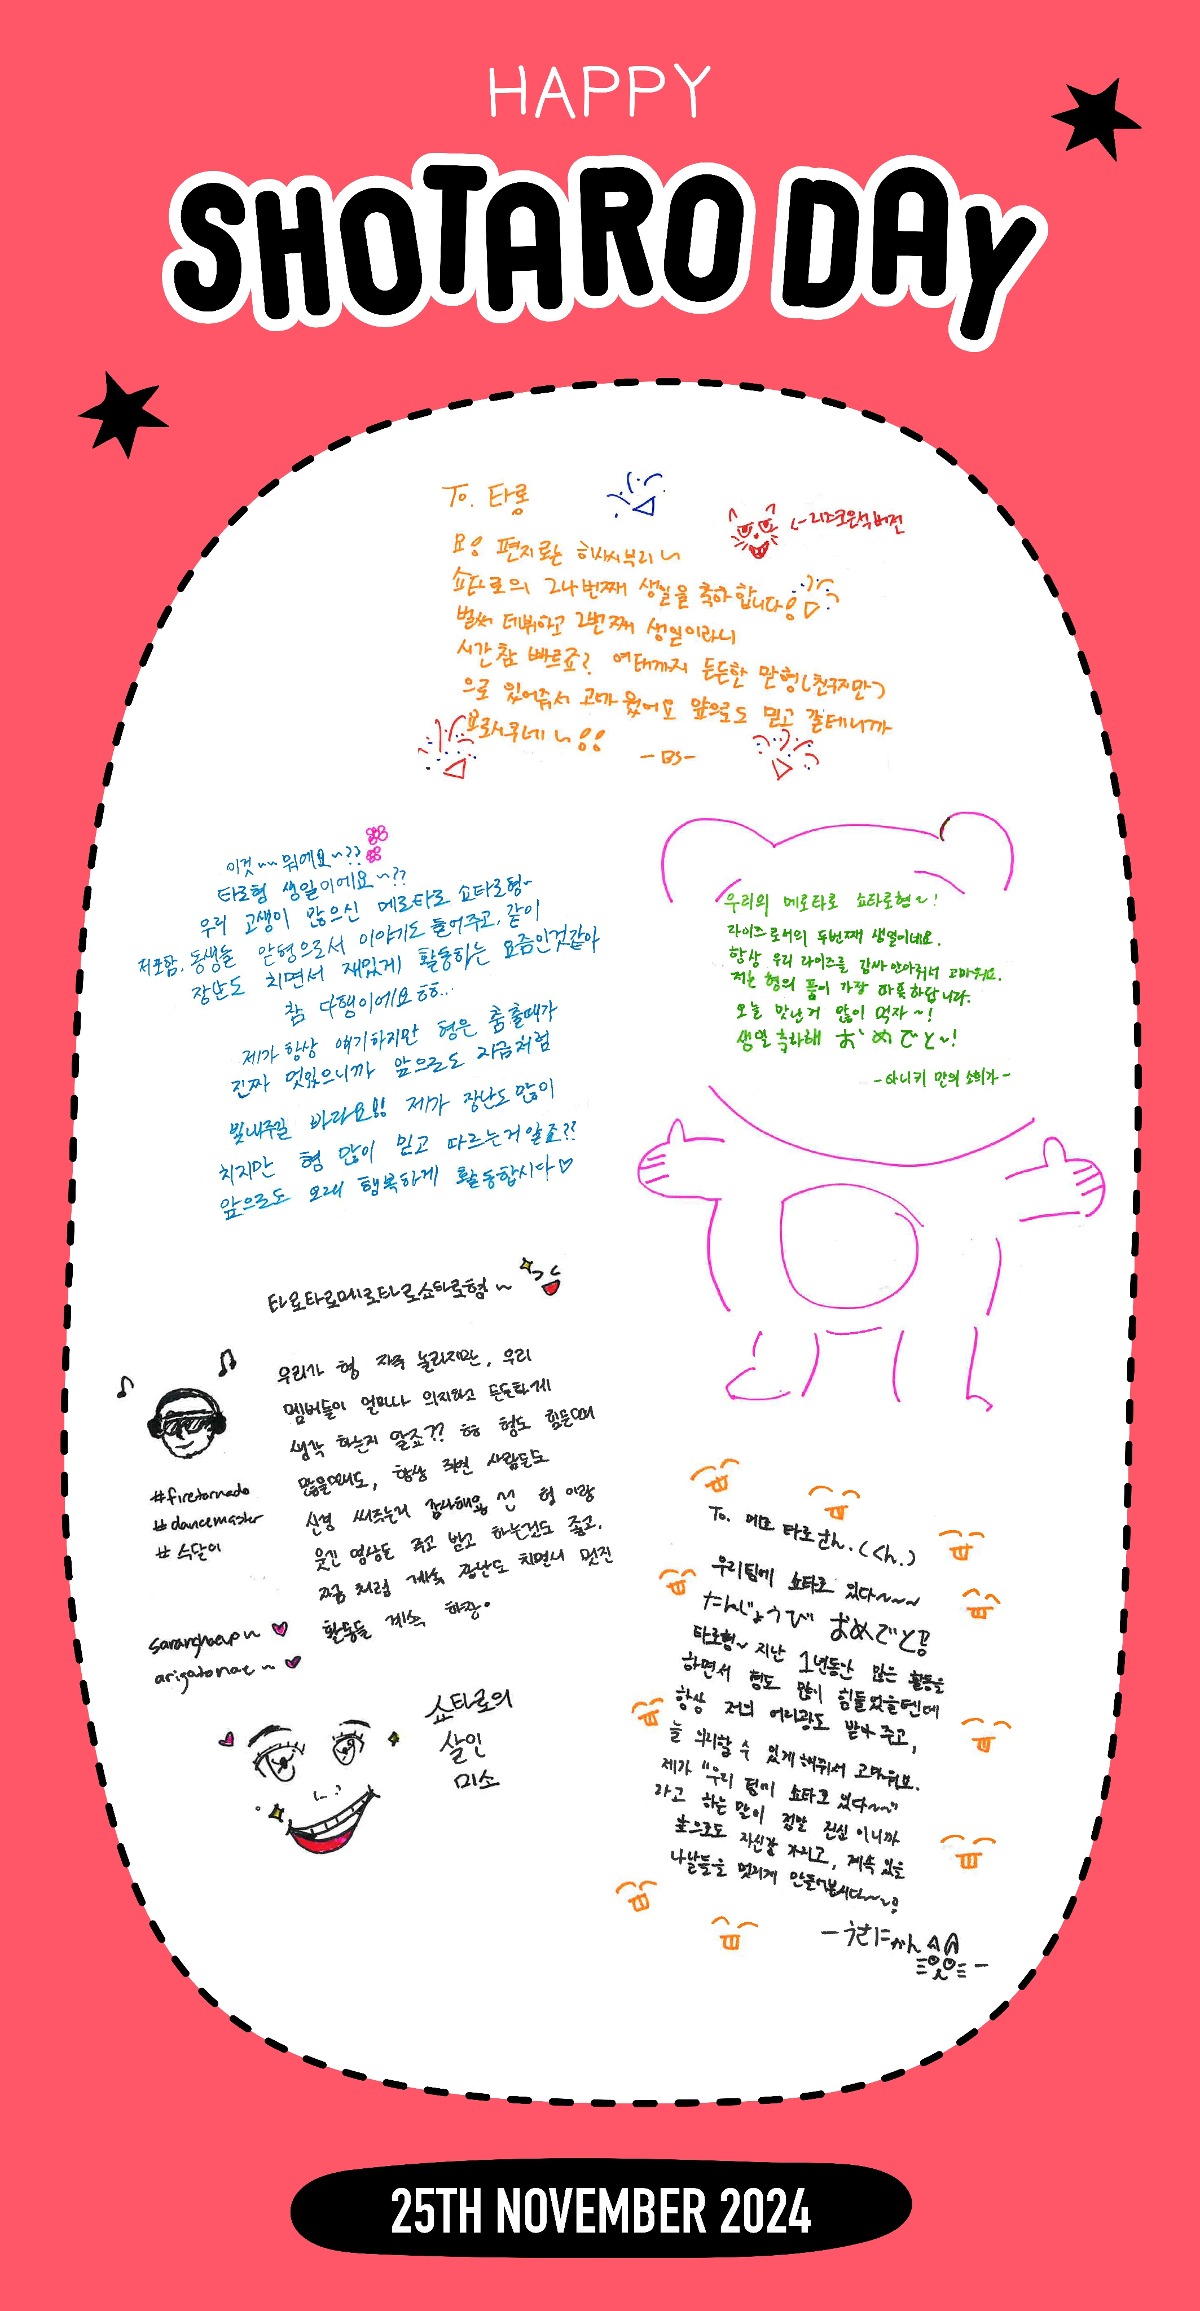 HAPPY
SHOTARO DAY
To. 타롱
요! 편지로는 히사시부리~
쇼타로의 24번째 생일을 축하합니다!
벌써 데뷔하고 2번째 생일이라니
시간 참 빠르죠? 여태까지 든든한 맏형(친구지만)
으로 있어줘서 고마웠어요 앞으로도 믿고 갈테니까
요로시쿠네~!!
-BS-
이것~~ 뭐에요~??
타로형 생일이에요~??
우리 고생이 많으신 메로타로 쇼타로형~
저포함, 동생들 맏형으로서 이야기도 들어주고, 같이
장난도 치면서 재밌게 활동하는 요즘인것같아
참 다행이에요ㅎㅎ...
제가 항상 얘기하지만 형은 춤출때가
진짜 멋있으니까 앞으로도 지금처럼
빛내주길 바라요!! 제가 장난도 많이
치지만 형 많이 믿고 따르는거 알죠??
앞으로도 오래 행복하게 활동합시다♡
우리의 메로타로 쇼타로형~!
라이즈로서의 두번째 생일이네요.
항상 우리 라이즈를 감싸 안아줘서 고마워요.
저는 형의 품이 가장 따뜻하답니다.
오늘 맛난거 많이 먹자~!
생일 축하해 おめでと~!
-아니키 만의 소희가-
타로타로메로타로쇼타로형~
우리가 형 자주 놀리지만, 우리
멤버들이 얼마나 의지하고 든든하게
생각 하는지 알죠?? ㅎㅎ 형도 힘든때
많을텐데도, 항상 주변 사람들도
신경 써주는거 감사해요 형 이랑
웃긴 영상들 주고 받고 하는것도 좋고,
지금 처럼 계속 장난도 치면서 멋진
활동들 계속 하장.
#firetornado
#dancemaster
#수달이
saranghaeyo~
arigatonae~
쇼타로의
살인
미소
To. 메로 타로さん.(くん.)
우리팀에 쇼타로 있다~~~
たんじょうび おめでと
타로형~ 지난 1년동안 많은 활동을
하면서 형도 많이 힘들었을텐데
항상 저의 어리광도 받아 주고,
늘 의지할 수 있게 해줘서 고마워요.
제가 "우리 팀에 쇼타로 있다~~"
라고 하는 말이 정말 진심 이니까
앞으로도 자신감 가지고, 계속 있을
나날들을 멋지게 만들어봅시다~~!
25TH NOVEMBER 2024